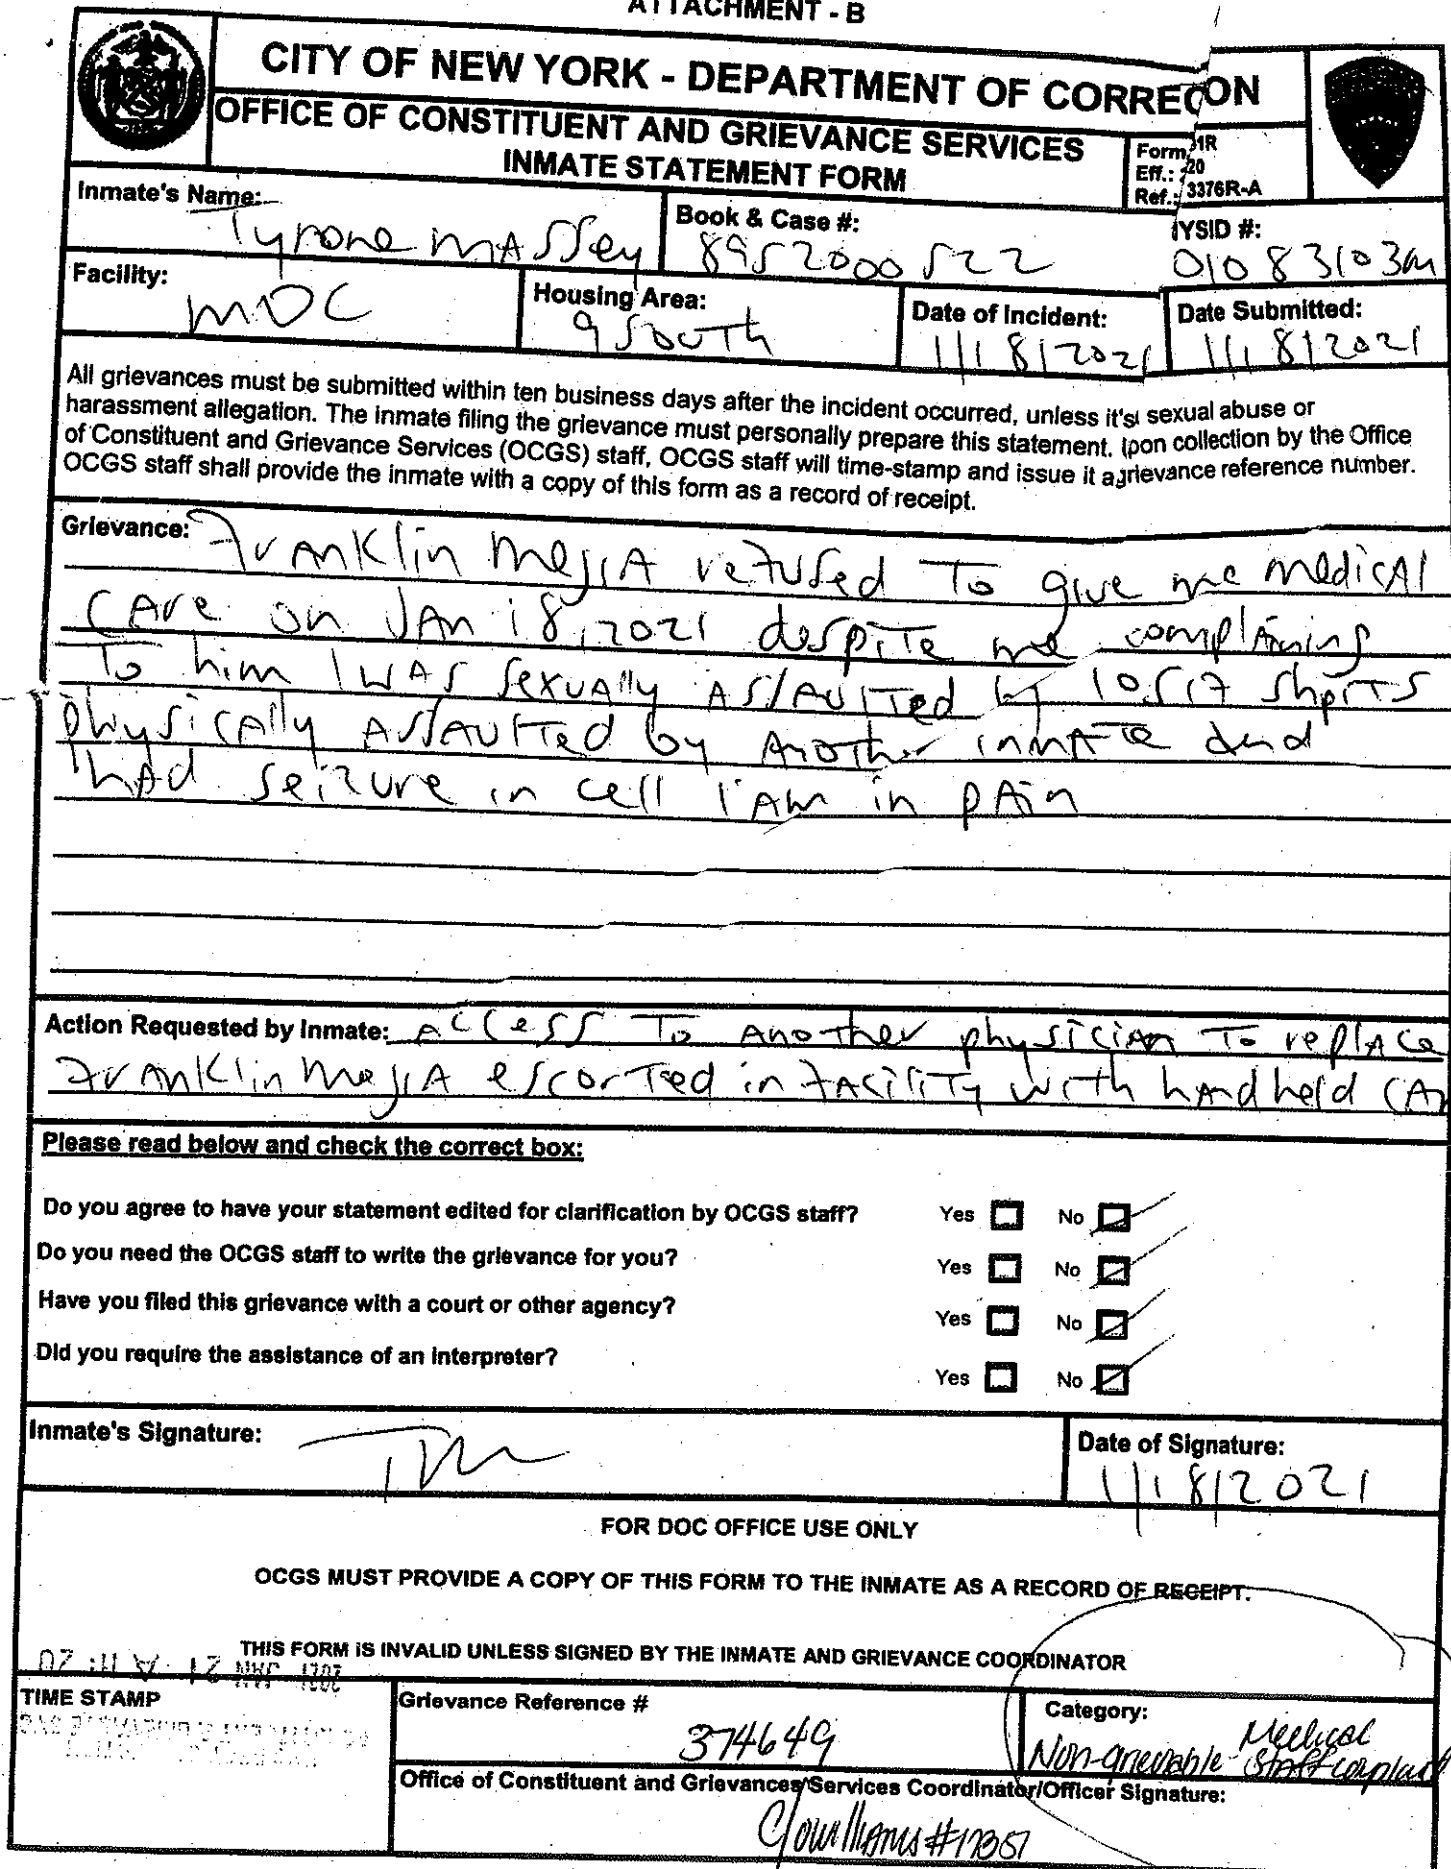 ATTACHMENT - B
CITY OF NEW YORK - DEPARTMENT OF CORRECON
OFFICE OF CONSTITUENT AND GRIEVANCE SERVICES
INMATE STATEMENT FORM
Form 1R
Eff.: 20
Ref.: 3376R-A
Inmate's Name: Tyrone MASSey
Book & Case #: 8952000522
YSID #: 01083103m
Facility: MDC
Housing Area: 9 South
Date of Incident: 1/18/2021
Date Submitted: 1/18/2021
All grievances must be submitted within ten business days after the incident occurred, unless it's sexual abuse or
harassment allegation. The inmate filing the grievance must personally prepare this statement. pon collection by the Office
of Constituent and Grievance Services (OCGS) staff, OCGS staff will time-stamp and issue it a rievance reference number.
OCGS staff shall provide the inmate with a copy of this form as a record of receipt.
Grievance: Franklin MejiA refused To give me medicAl
CAre on JAn 18, 2021 despite me complAining
To him I WAS sexuAlly ASSAulTed by 10517 ShorTS
physicAlly ASSAulTed by AnoTher inmATe And
hAd seizure in cell I Am in pAin
Action Requested by Inmate: Access To AnoTher physiciAn To replAce
FrAnklin MejiA escorTed in fAciliTy with hAndheld CAm
Please read below and check the correct box:
Do you agree to have your statement edited for clarification by OCGS staff? Yes No
Do you need the OCGS staff to write the grievance for you? Yes No
Have you filed this grievance with a court or other agency? Yes No
Did you require the assistance of an interpreter? Yes No
Inmate's Signature: TM
Date of Signature: 1/18/2021
FOR DOC OFFICE USE ONLY
OCGS MUST PROVIDE A COPY OF THIS FORM TO THE INMATE AS A RECORD OF RECEIPT.
THIS FORM IS INVALID UNLESS SIGNED BY THE INMATE AND GRIEVANCE COORDINATOR
2021 JAN 21 A 11: 20
TIME STAMP
Grievance Reference #
374649
Category:
Non-grievable - Medical
Staff complaint
Office of Constituent and Grievances/Services Coordinator/Officer Signature:
#17351